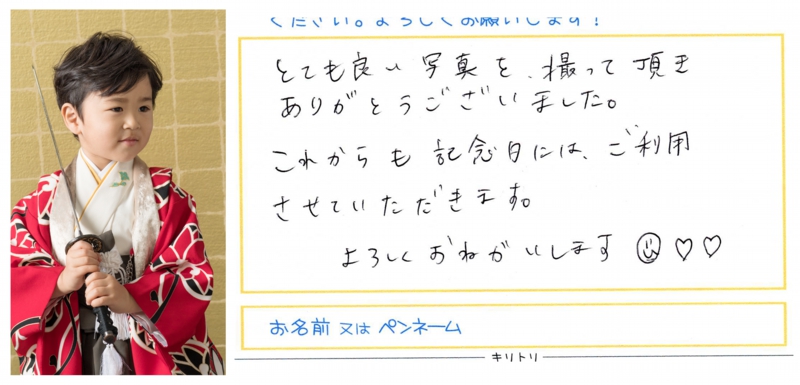 ください。よろしくお願いします!
とても良い写真を、撮って頂き
ありがとうございました。
これからも記念日には、ご利用
させていただきます。
よろしくおねがいします ♡♡
お名前 又は ペンネーム
キリトリ